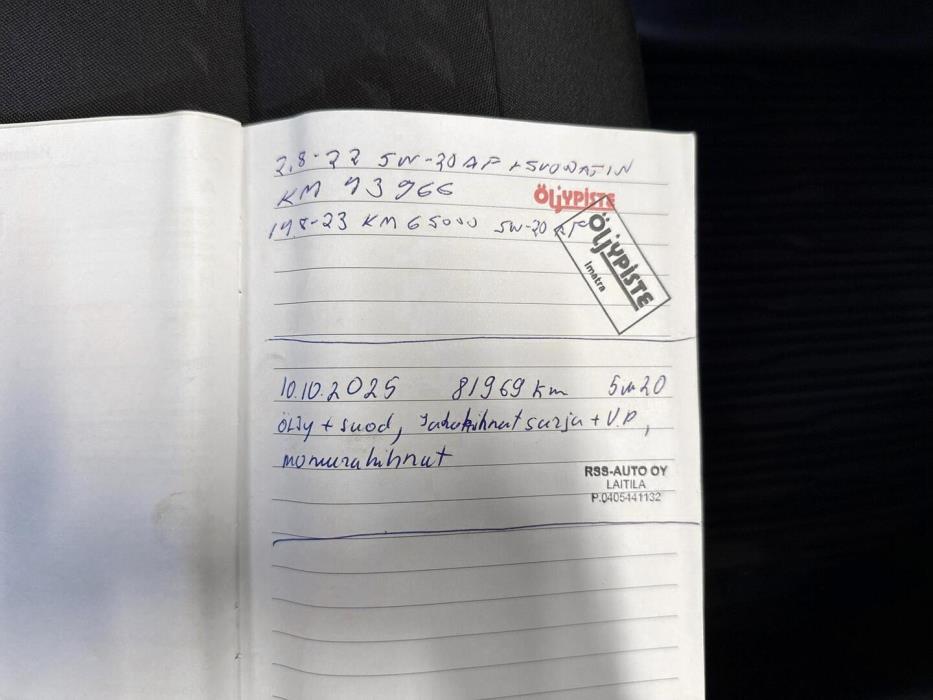 2.8-22 5W-30 AF + SUODATIN
KM 43 966
ÖLJYPISTE
14.8-23 KM 65000 5W-20 AF
ÖLJYPISTE
Imatra
10.10.2025 81969 km 5w20
ÖLJY + suod, Jakohihnat sarja + V.P,
monurahihnat
RSS-AUTO OY
LAITILA
P.0405441132